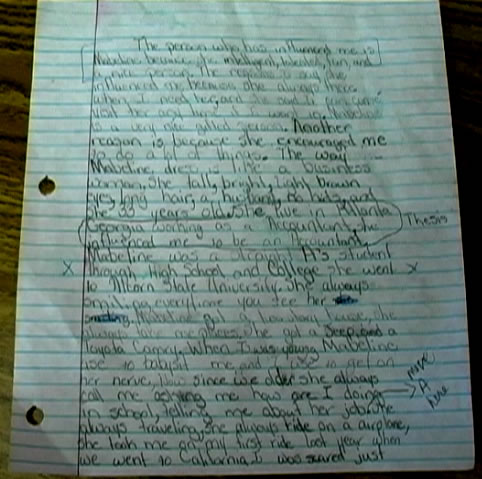 The person who has influenced me is
Mabeline because she intelligent, talented, fun, and
a nice person. The reason I say she
influenced me because she always there
when I need her, and she
visit her and
is a very nice gifted person. Another
reason is because she encouraged me
to do a lot of things. The way
Mabeline, dress is like a business
woman. She tall, bright, light brown
eyes, long hair, a husband, no kids, and
she 33 years old. She live in Atlanta
Georgia working as a Accountant, she
Thesis
influenced me to be an Accountant.
Mabeline was a straight A's student
X through High School and College she went X
to Alcorn State University. She always
everytime you see her
Mabeline got a two story house, she
always take me places. She got a Jeep, and a
Toyota Camry. When I was young Mabeline
use to babysit me and I use to get on
her nerve, Now since we older she always
call me asking me how are I doing
in school, telling me about her job. She
always traveling, she always ride on a airplane,
she took me on my first ride last year when
we went to California. I was scared just